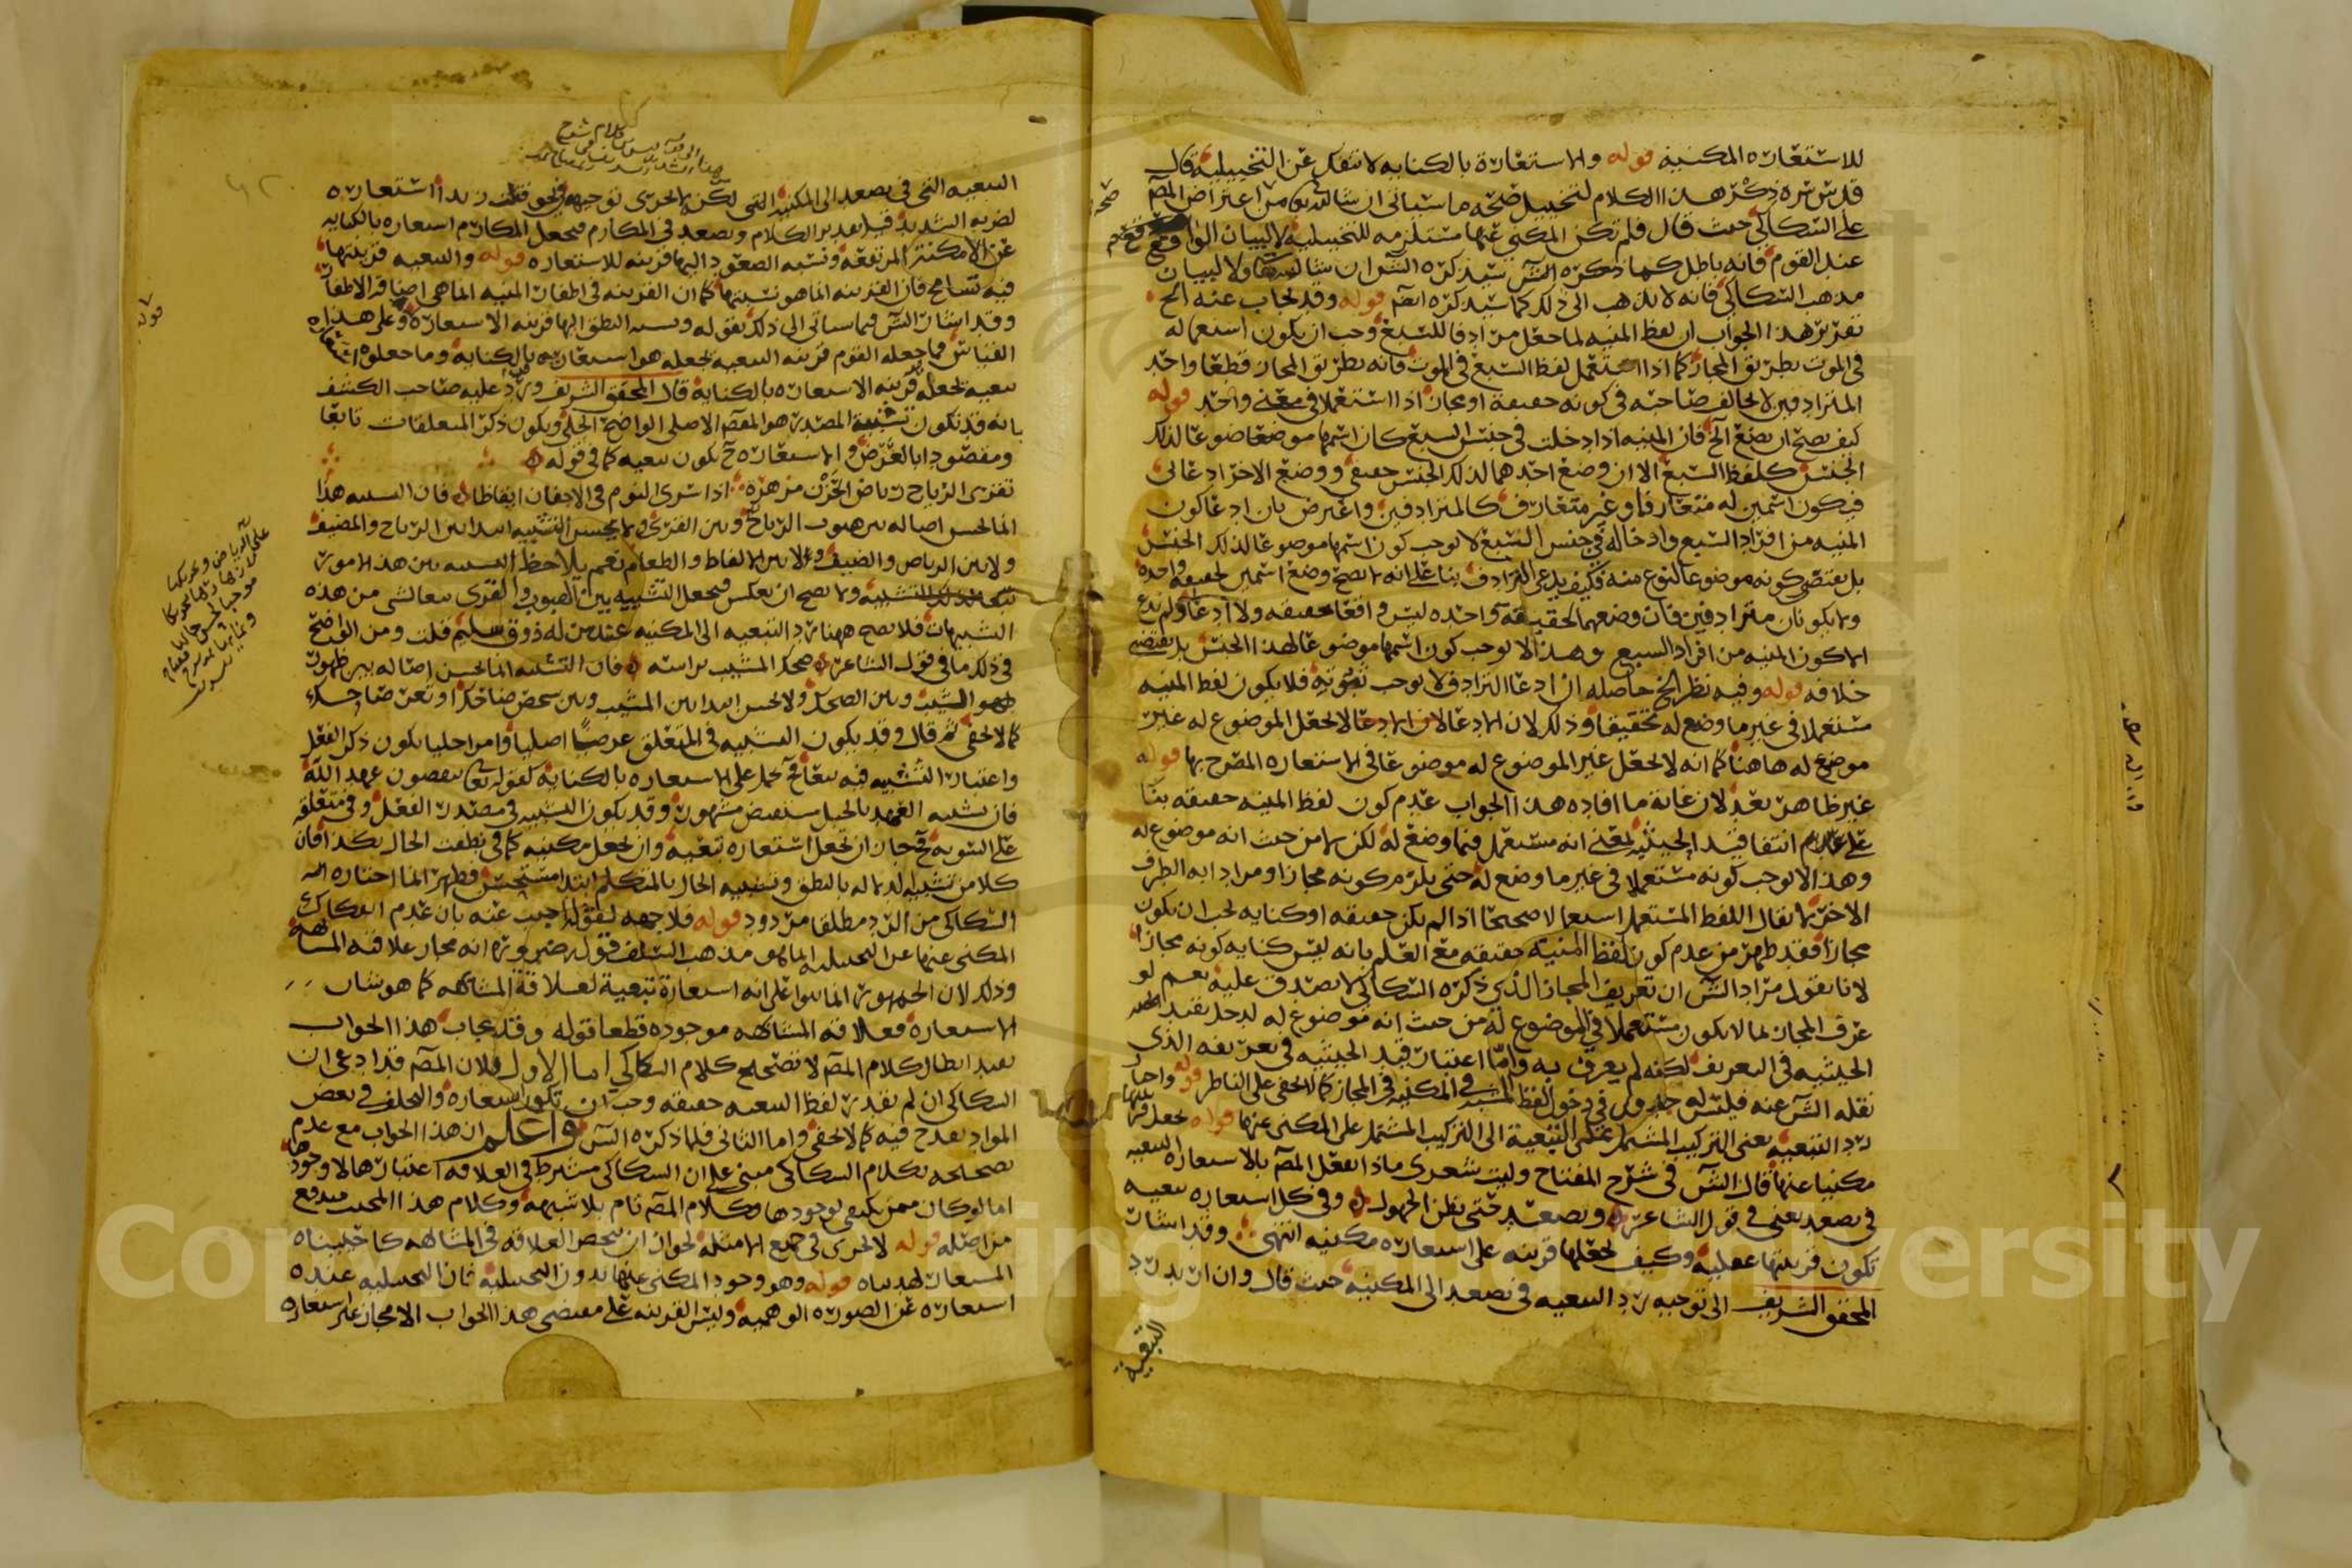 للاستعاره المكنيه قوله والاستعارة بالكنايه لا تنفك عن التخييلية قال
قدس سره ذكر هذا الكلام لتخييل صحه ما سياتى ان شا الله تعا من اعتراض المص
على السكاكي حيث قال فلم تكن المكنى عنها مستلزمه للتخييلية لا لبيان الواقع
عند القوم فانه باطل كما ذكره الش سيذكره الش ان شا الله تعا ولا لبيان
مذهب السكاكي فانه لا يذهب الى ذلك كما سيذكره ايضا قوله وقد يجاب عنه الخ
تقرير هذا الجواب ان لفظ المنيه لما جعل مرادفا للسبع وجب ان يكون استعماله
في الموت بطريق المجاز كما اذا استعمل لفظ السبع في الموت فانه بطريق المجاز قطعا واحد
المترادفين لا يخالف صاحبه في كونه حقيقة او مجازا اذا استعملا في معنى واحد قوله
كيف يصح ان يصنع الخ فان المنيه اذا دخلت في جنس السبع كان اسمها موضعا ضوعا لذلك
الجنس كلفظ السبع الا ان وضع احدهما لذلك الجنس حقيقي ووضع الاخر ادعائى
فيكون اسمين له متعارفا وغير متعارف كالمترادفين واعترض بان ادعا كون
المنيه من افراد السبع وادخاله في جنس السبع لا يوجب كون اسمها موضوعا لذلك الجنس
بل يقتضى كونه موضوعا لنوع منه فكيف يدعى الترادف بنا على انه لا يصح وضع اسمين لحقيقة واحدة
ولا يكونان مترادفين فان وضعهما لحقيقة واحده ليس واقعا حقيقه ولا ادعا ولم يدع
الا كون المنيه من افراد السبع وهذا لا يوجب كون اسمها موضوعا لهذا الجنس بل يقتضى
خلافه قوله وفيه نظر الخ حاصله ان ادعا الترادف لا يوجب ثبوته فلا يكون لفظ المنيه
مستعملا في غير ما وضع له تحقيقا وذلك لان الادعا لا يجعل الموضوع له غير
موضوع له هاهنا كما انه لا يجعل غير الموضوع له موضوعا في الاستعاره المصرح بها قوله
غير ظاهر بعد لان غاية ما افاده هذا الجواب عدم كون لفظ المنيه حقيقه بنا
على عدم انتفا قيد الحيثيه لمعنى انه مستعمل فيما وضع له لكن لا من حيث انه موضوع له
وهذا لا يوجب كونه مستعملا في غير ما وضع له حتى يلزم كونه مجازا ومراد ابه الطرف
الاخر لا يقال اللفظ المستعمل استعمالا صحيحا اذا لم يكن حقيقه او كنايه يجب ان يكون
مجازا فقد ظهر من عدم كون لفظ المنيه حقيقه مع العلم بانه ليس كنايه كونه مجازا
لانا نقول مراد الش ان تعريف المجاز الذي ذكره السكاكي لا يصدق عليه نعم لو
عرف المجاز بما لا يكون مستعملا في الموضوع له من حيث انه موضوع له لدخل بقيد
الحيثيه في التعريف لكنه لم يعرف به واما اعتبار قيد الحيثيه في تعريفه الذى
نقله الش عنه فليس له جدوى في دخول لفظ المنيه في المكنيه في المجاز كما لا يخفى على الناظر قوله واختار
رد التبعيه يعنى التركيب المشتمل على التبعية الى التركيب المشتمل على المكنى عنها قوله بجعل قرينتها
مكنيا عنها قال الش في شرح المفتاح وليت شعرى ماذا يفعل المص بالاستعاره التبعيه
في يصعد يعنى في قول الشاعر ويصعد حتى يظن الجهول وفي كل استعاره تبعيه
تكون قرينتها عقلية وكيف يجعلها قرينه على استعاره مكنيه انتهى وقد اشار
المحقق الشريف الى توجيه رد التبعيه في يصعد الى المكنية حيث قال وان اريد رد
التبعية
التبعيه التى في يصعد الى المكنيه التى لكن الاحرى توجيهه في نحو قتلت زيدا استعاره
لضربه الشديد قيل تقدير الكلام ويصعد في المكارم فيجعل المكارم استعاره بالكنايه
عن الامكنة المرتفعه ونسبه الصعود اليها قرينه للاستعاره قوله والتبعيه قرينتها
فيه تسامح فان القرينه انما هو نسبتها كما ان القرينه في اظفار المنيه انما هى اضافة الاظفار
وقد اشار الش فيما سياتى الى ذلك بقوله ونسبه النطق اليها قرينه الاستعاره وعلى هذا
القياس فما جعله القوم قرينه التبعيه يجعله هو استعاره بالكناية وما جعلوه استعاره
تبعيه يجعله قرينه الاستعاره بالكناية قال المحقق الشريف ورد عليه صاحب الكشف
بانه قد تكون تشبيه المصدر هو المقصد الاصلى الواضح الجلى ويكون ذكر المتعلقات تابعا
ومقصودا بالعرض والاستعاره ح تكون تبعيه كما في قوله
تقرى الرياح رياض الحزن مزهره اذا سرى النوم في الاجفان ايقاظا فان التشبيه هذا
انما يحسن اصاله بين هبوب الرياح وبين القرى ولا يحسن التشبيه ابتدا بين الرياح والمضيف
ولا بين الرياض والضيف ولا بين الايقاظ والطعام نعم يلاحظ التشبيه بين هذه الامور
تبعا لذلك التشبيه ولا يصح ان يعكس فيجعل التشبيه بين الهبوب والقرى تبعا لشى من هذه
التشبيهات فلا يصح ههنا رد التبعيه الى المكنيه عند من له ذوق سليم قلت ومن الواضح
في ذلك ما في قول الشاعر ضحك المشيب براسه فان التشبيه انما يحسن اصاله بين ظهور
الشيب وبين الضحك ولا يحسن ابتدا بين المشيب وبين شخص ضاحك
كما لا يخفى ثم قال وقد يكون التشبيه في المتعلق غرضا اصليا وامرا جليا يكون ذكر الفعل
واعتبار التشبيه فيه تبعا فح يحمل على الاستعاره بالكنايه كقوله تعا ينقضون عهد الله
فان تشبيه العهد بالحبل مستفيض مشهور وقد يكون التشبيه في مصدر الفعل وفي متعلقه
على السويه فح جاز ان تجعل استعاره تبعيه وان تجعل مكنيه كما في نطقت الحال بكذا فان
كلا من تشبيه الدلاله بالنطق وتشبيه الحال بالمتكلم ابتدا مستحسن وظهر ان ما اختاره
السكاكى من الرد مطلقا مردود قوله فلا جهه لقوله اجيب عنه بان عدم انفكاك
المكنى عنها عن التخييليه انما هو مذهب السلف قوله ضروره انه مجاز علاقته المشابهه
وذلك لان الجمهور انما بنوا على انه استعارة تبعية لعلاقة المشابهه كما هو شان
الاستعاره فعلاقه المشابهه موجوده قطعا قوله وقد يجاب هذا الجواب
بعيد ابطال كلام المص لا تصحيح كلام السكاكي اما الاول فلان المص قد ادعى ان
السكاكى ان لم يقدر لفظ التبعيه حقيقه وجب ان تكون استعاره والتخلف في بعض
المواد يقدح فيه كما لا يخفى واما الثانى فلما ذكره الش واعلم ان هذا الجواب مع عدم
تصحيحه بكلام السكاكى مبنى على ان السكاكى مشترط في العلاقه اعتبارها لا وجودها
اما لو كان ممن يكتفى بوجودها وكلام المص تام بلا شبهه وكلام هذا المجيب مندفع
من اصله قوله لا يجرى في جميع الامثله لجواز ان تنحصر العلاقه في المشابهه كما
قوله وهو وجود المكنى عنها بدون التخييلية فان التخييليه عنده
استعاره عن الصوره الوهميه وليس القرينه على مقتضى هذا الجواب الا مجاز غير استعاره